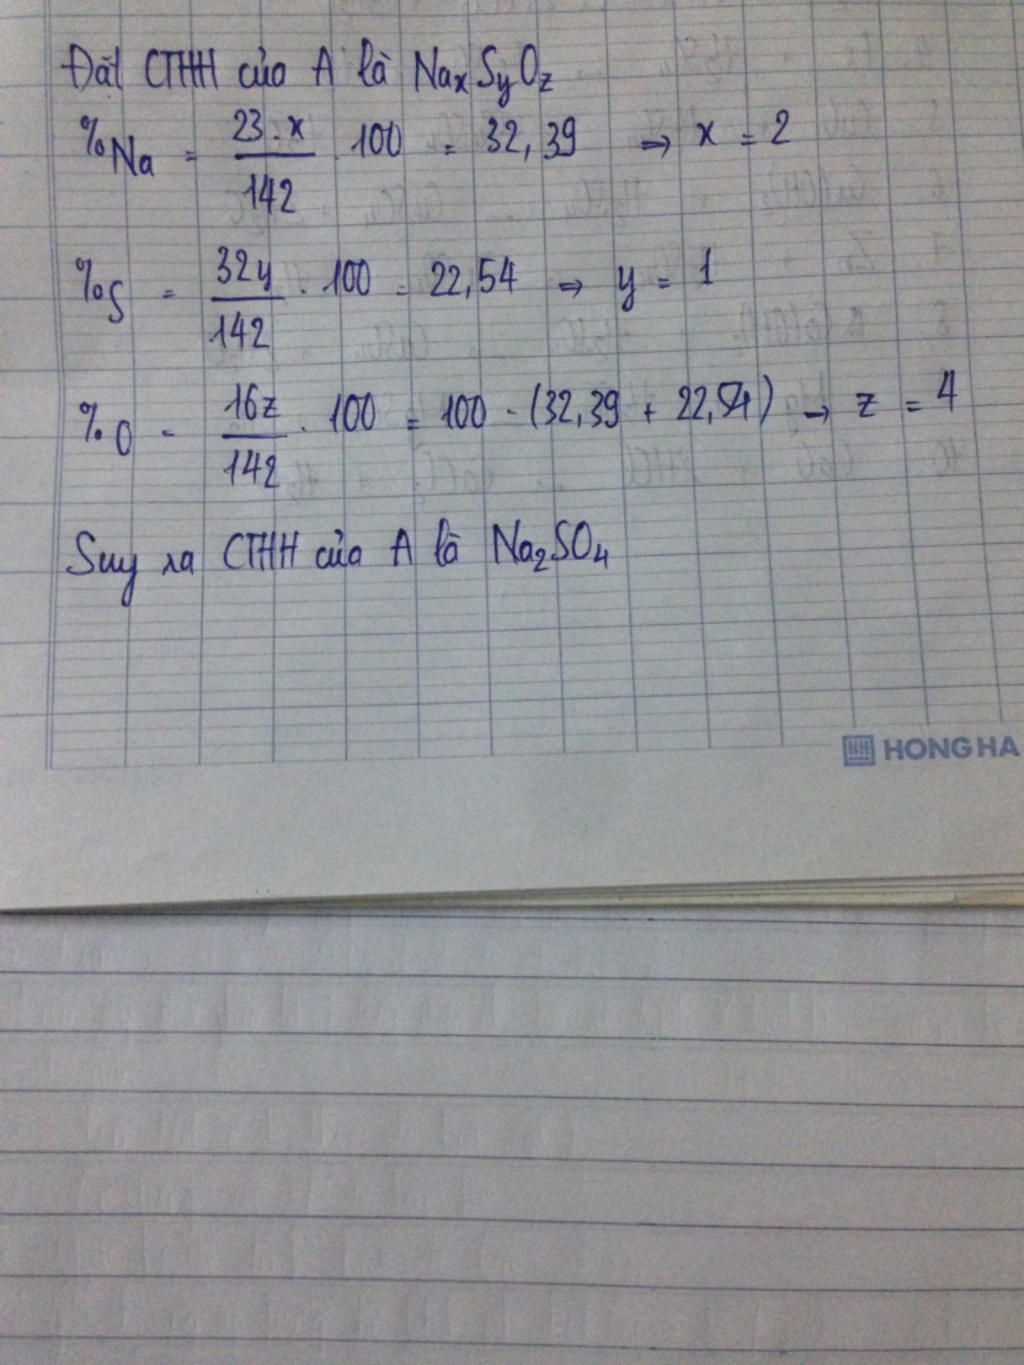 Đặt CTHH của A là NaxSyOz
%Na = 23.x / 142 . 100 = 32,39 => x = 2
%S = 32y / 142 . 100 = 22,54 => y = 1
%O = 16z / 142 . 100 = 100 - (32,39 + 22,54) -> z = 4
Suy ra CTHH của A là Na2SO4
HONG HA